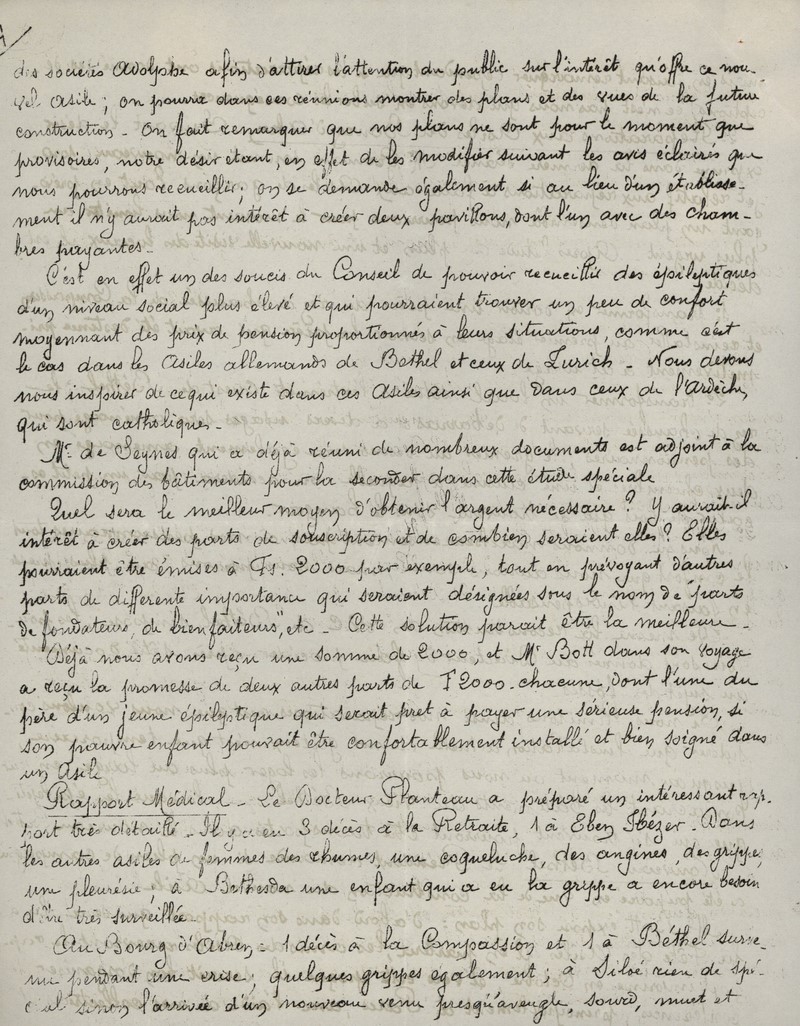 des sociétés Adolphe afin d'attirer l'attention du public sur l'intérêt qu'offre ce nou-
vel asile ; on pourra dans ces réunions montrer des plans et des vues de la future
construction - On fait remarquer que nos plans ne sont pour le moment que
provisoires, notre désir étant, en effet de les modifier suivant les avis éclairés que
nous pourrons recueillir ; on se demande également si au lieu d'un établisse-
ment il n'y aurait pas intérêt à créer deux pavillons, dont l'un avec des cham-
bres payantes -
C'est en effet un des soucis du Conseil de pouvoir recueillir des épileptiques
d'un niveau social plus élevé et qui pourraient trouver un peu de confort
moyennant des prix de pension proportionnés à leurs situations, comme c'est
le cas dans les Asiles allemands de Bethel et ceux de Zurich - Nous devons
nous inspirer de ce qui existe dans ces Asiles ainsi que dans ceux de l'Ardèche,
qui sont catholiques -
Mr de Seynes qui a déjà réuni de nombreux documents est adjoint à la
commission des bâtiments pour la seconder dans cette étude spéciale
Quel sera le meilleur moyen d'obtenir l'argent nécessaire ? Y aurait-il
intérêt à créer des parts de souscription et de combien seraient elles ? Elles
pourraient être émises à Fs. 2000 par exemple, tout en prévoyant d'autres
parts de differente importance qui seraient désignées sous le nom de "parts
de fondateurs, de bienfaiteurs", etc - Cette solution parait être la meilleure -
Déjà nous avons reçu une somme de 2000, et Mr Bott dans son voyage
a reçu la promesse de deux autres parts de F 2000 - chacune, dont l'une du
père d'un jeune épileptique qui serait pret à payer une sérieuse pension, si
son pauvre enfant pouvait être confortablement installé et bien soigné dans
un Asile
Rapport Médical - Le Docteur Planteau a préparé un intéressant rap-
port très détaillé - Il y a eu 3 décès à la Retraite, 1 à Eben Hézer - Dans
les autres asiles de femmes des rhumes, une coqueluche, des angines, des grippes,
une pleurésie ; à Bethesda une enfant qui a eu la grippe a encore besoin
d'être très surveillée -
Au Bourg d'Abren - 1 décès à la Compassion et 1 à Béthel surve-
nu pendant une crise ; quelques grippes egalement ; à Siloé rien de spé-
cial sinon l'arrivée d'un nouveau venu presqu'aveugle, sourd, muet et